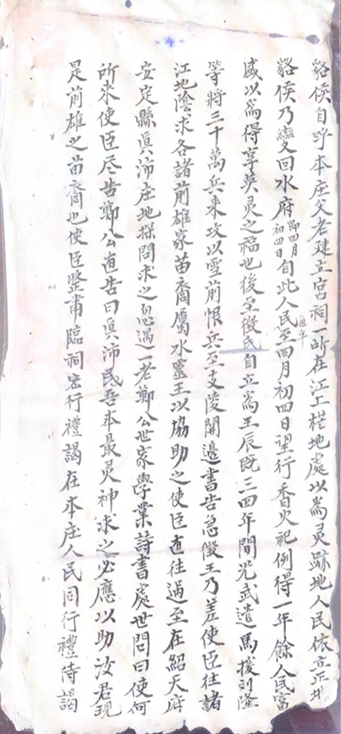 貉侯自此本庄父老建立宮祠一所在江上椗地處以爲灵跡地人民依意正北
貉侯乃變回水府即四月初四日自此人民每年至四月初四日望行香火祀例得一年餘人民富
盛以爲得享英灵之福也後至徵氏自立爲王辰既三四年間光武遣馬援刘隆
等將三十萬兵來攻以雪前恨兵至支陵開邊書告急徵王乃差使臣往諸
江地陰求各諸前雄家苗裔屬水靈王以協助之使臣直往過至在紹天府
安定縣真沛庄地探問求之忽遇一老鄭公世家學業詩書處世問曰使何
所來使臣尽告鄭公直告曰真沛民吾本最灵神求之必應以助汝君現
是前雄之苗裔也使臣整肅臨祠密行禮謁在本庄人民同行禮侍謁